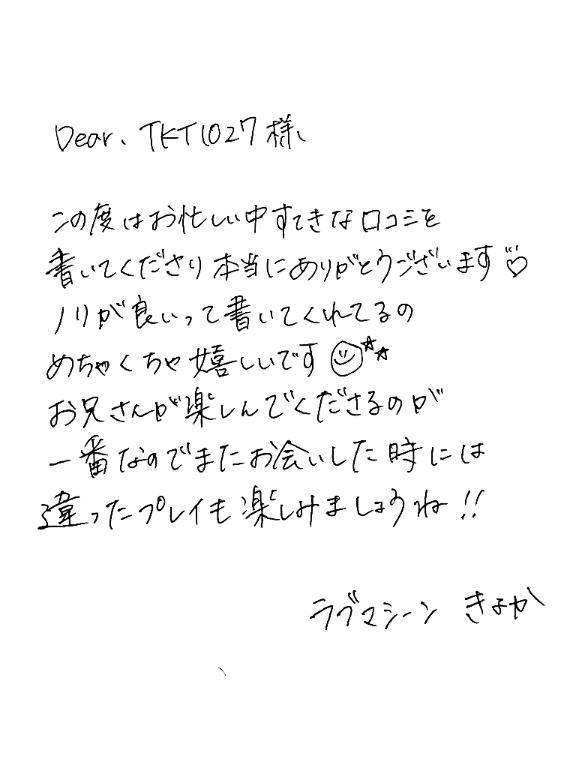 Dear、TKT1027様、
この度はお忙しい中すてきな口コミを
書いてくださり本当にありがとうございます♡
ノリが良いって書いてくれてるの
めちゃくちゃ嬉しいです☺★★
お兄さんが楽しんでくださるのが
一番なのでまたお会いした時には
違ったプレイも楽しみましょうね!!
ラブマシーン きよか